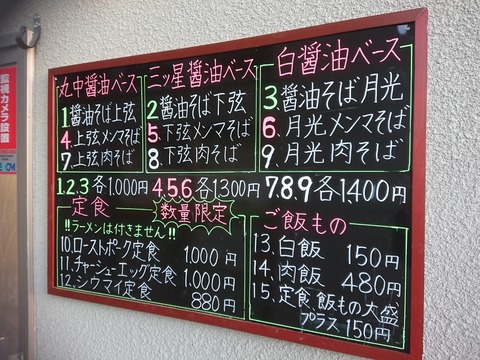 監視カメラ設置
丸中醤油ベース
1醤油そば上弦
4.上弦メンマそば
7.上弦肉そば
三ッ星醤油ベース
2醤油そば下弦
5.下弦メンマそば
8.下弦肉そば
白醤油ベース
3.醤油そば月光
6.月光メンマそば
9.月光肉そば
1.2.3各1,000円 4.5.6各1300円 7.8.9各1,400円
定食 数量限定
!!ラーメンは付きません!!
10.ローストポーク定食 1,000円
11.チャーシューエッグ定食 1,000円
12.シウマイ定食 880円
ご飯もの
13.白飯 150円
14.肉飯 480円
15.定食、飯もの大盛
プラス150円